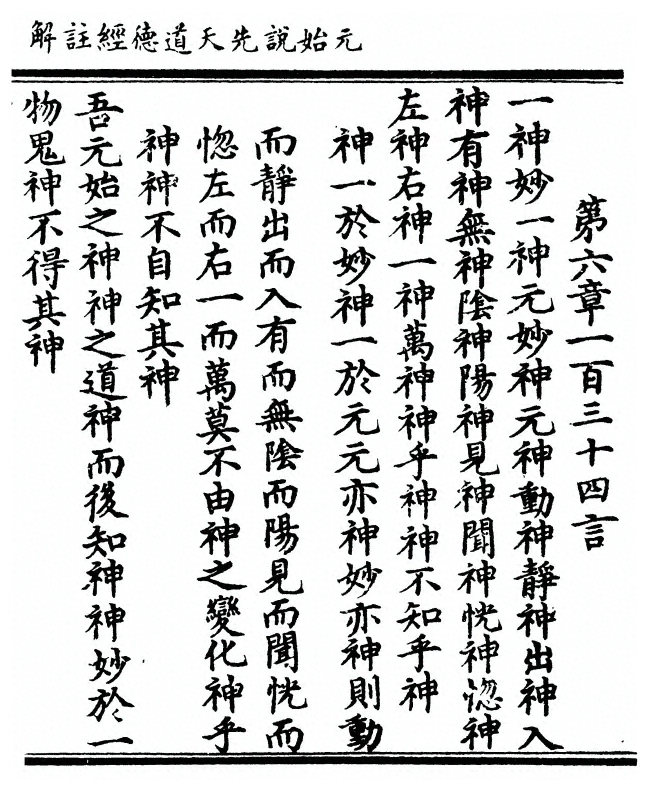 元始說先天道德經註解
第六章一百三十四言
一神妙一神元妙神元神動神靜神出神入
神有神無神陰神陽神見神聞神恍神惚神
左神右神一神萬神神乎神神不知乎神
神一於妙神一於元元亦神妙亦神則動
而靜出而入有而無陰而陽見而聞恍而
惚左而右一而萬莫不由神之變化神乎
神神不自知其神
吾元始之神神之道神而後知神神妙於一
物鬼神不得其神